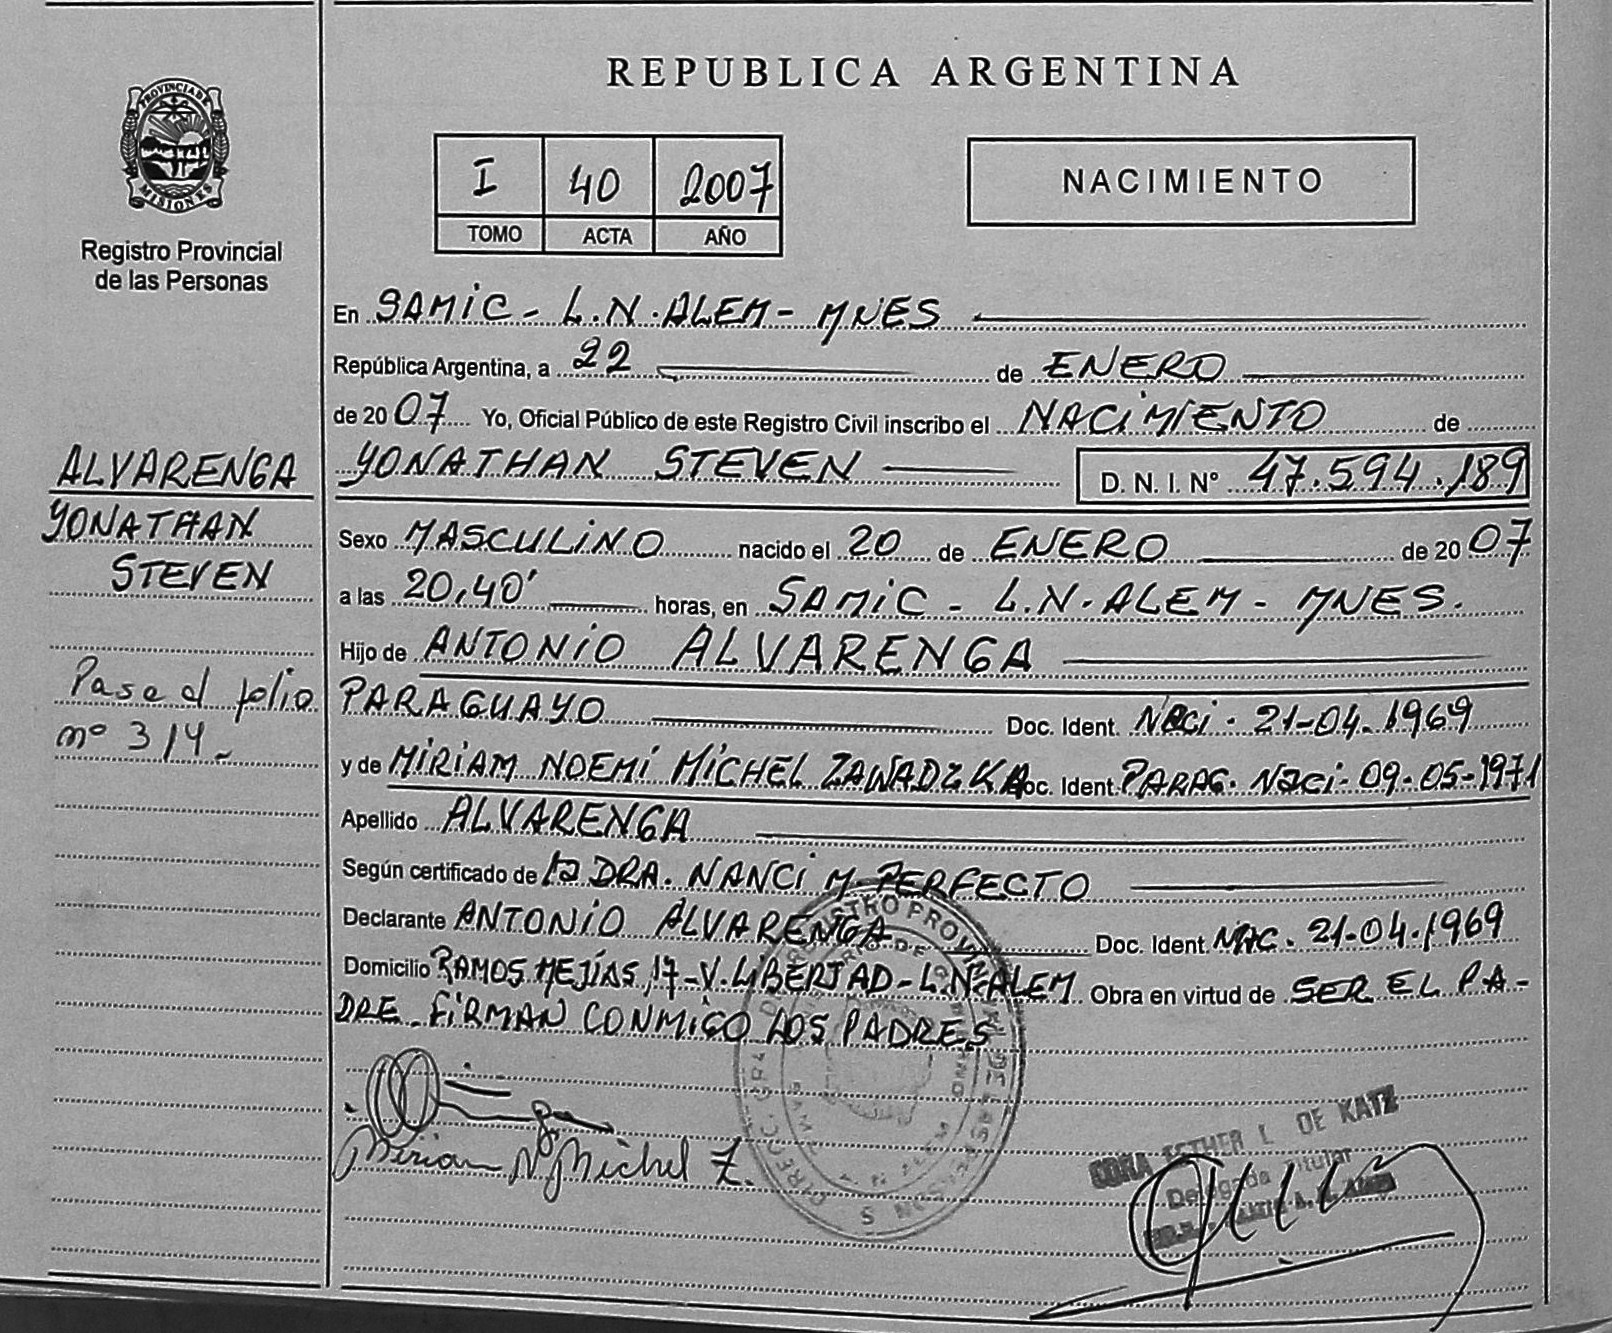 REPUBLICA ARGENTINA
PROVINCIA DE
MISIONES
Registro Provincial
de las Personas
I 40 2007
TOMO ACTA AÑO
NACIMIENTO
En SAMIC - L.N. ALEM - MNES
República Argentina, a 22 de ENERO
de 2007 Yo, Oficial Público de este Registro Civil inscribo el NACIMIENTO de
YONATHAN STEVEN D. N. I. Nº 47.594.189
ALVARENGA
YONATHAN
STEVEN
Sexo MASCULINO nacido el 20 de ENERO de 2007
a las 20,40' horas, en SAMIC - L.N. ALEM - MNES.
Hijo de ANTONIO ALVARENGA
Pase al folio
nº 314.-
PARAGUAYO Doc. Ident. Naci. 21-04-1969
y de MIRIAM NOEMI MICHEL ZAWADZKA Doc. Ident. PARAG. Naci- 09-05-1971
Apellido ALVARENGA
Según certificado de la DRA. NANCI M PERFECTO
Declarante ANTONIO ALVARENGA Doc. Ident. NAC. 21-04-1969
Domicilio RAMOS MEJÍAS, 17 - V. LIBERTAD - L.N. ALEM Obra en virtud de SER EL PA-
DRE. FIRMAN CONMIGO LOS PADRES
Miriam N Michel Z.
CORA ESTHER L. DE KATZ
Delegada Titular